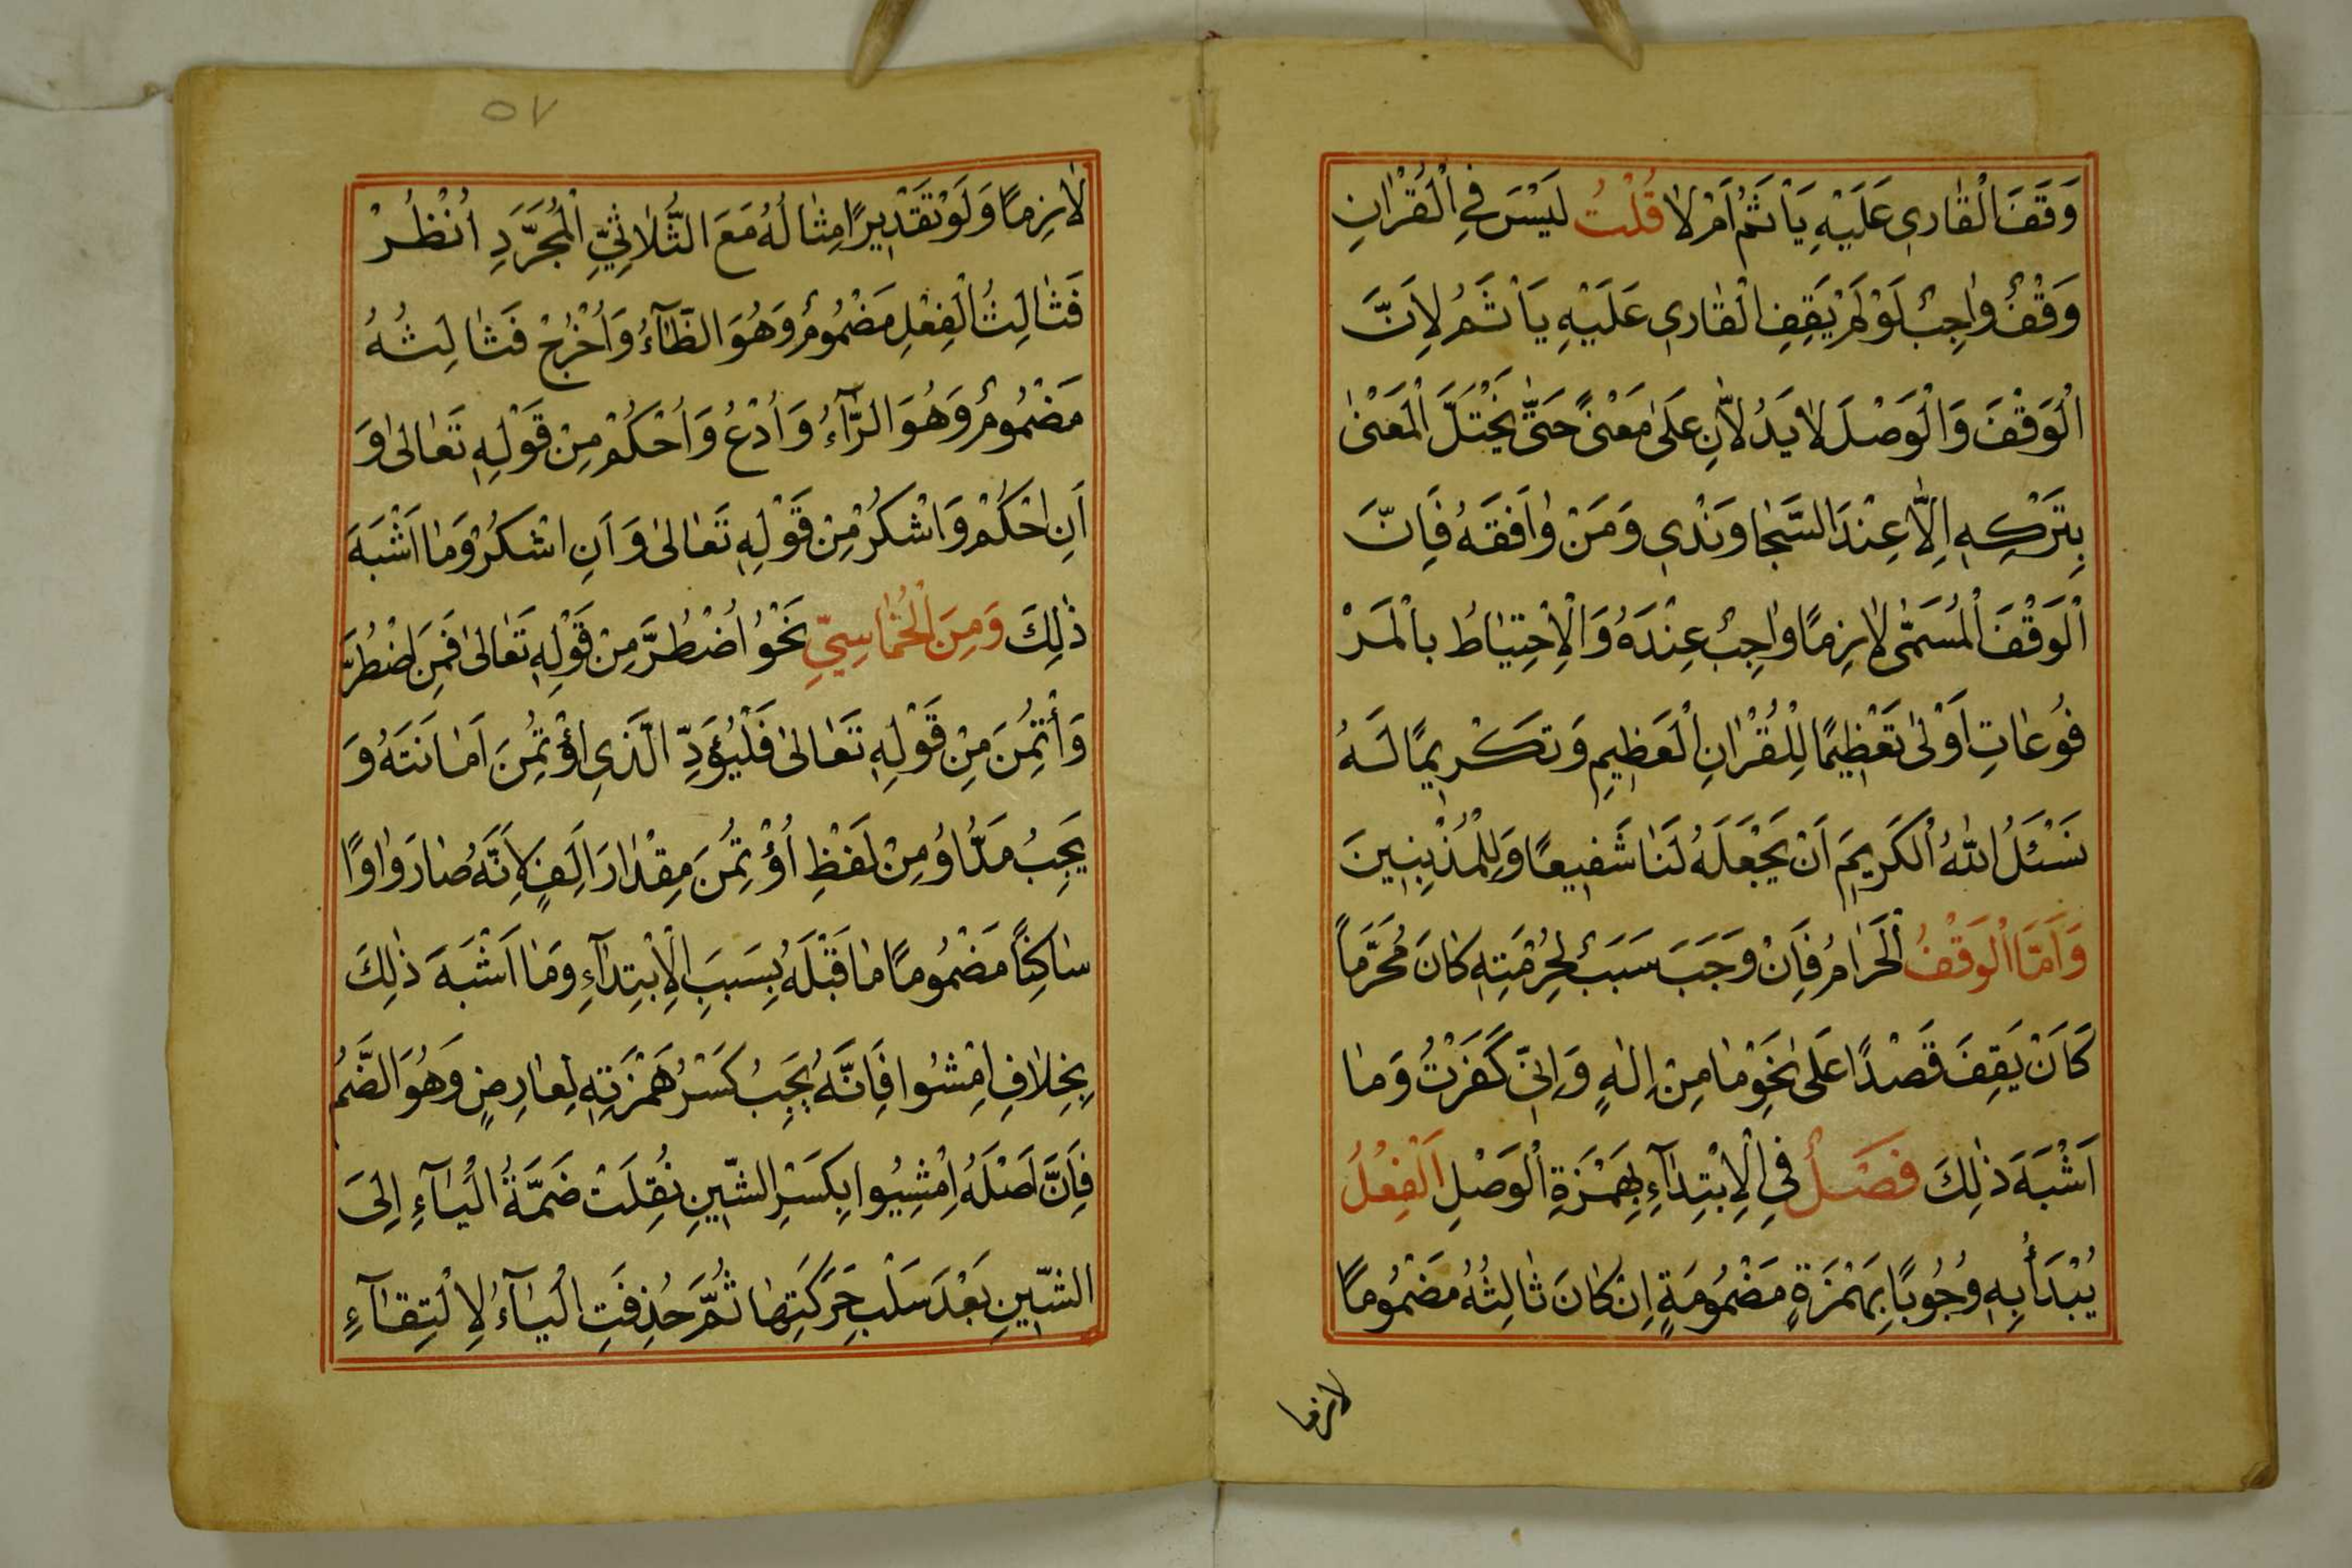 وَقَفَ الْقَارِي عَلَيْهِ يَأْثَمُ اَمْ لَا قُلْتُ لَيْسَ فِي الْقُرْاٰنِ
وَقْفٌ وَاجِبٌ لَوْ لَمْ يَقِفِ الْقَارِي عَلَيْهِ يَأْثَمُ لِاَنَّ
الْوَقْفَ وَالْوَصْلَ لَا يَدُلَّانِ عَلَى مَعْنًى حَتَّى يَخْتَلَّ الْمَعْنٰى
بِتَرْكِهِ اِلَّا عِنْدَ السَّجَاوَنْدِي وَمَنْ وَافَقَهُ فَاِنَّ
الْوَقْفَ الْمُسَمّٰى لَازِمًا وَاجِبٌ عِنْدَهُ وَالْاِحْتِيَاطُ بالْمَرْ
فُوعَاتِ اَوْلٰى تَعْظِيمًا لِلْقُرْاٰنِ الْعَظِيمِ وَتَكْرِيمًا لَهُ
نَسْئَلُ اللّٰهُ الْكَرِيمَ اَنْ يَجْعَلَهُ لَنَا شَفِيعًا وَلِلْمُذْنِبِينَ
وَاَمَّا الْوَقْفُ الْحَرَامُ فَاِنْ وَجَبَ سَبَبٌ لِحُرْمَتِهِ كَانَ مُحَرَّمًا
كَاَنْ يَقِفَ قَصْدًا عَلَى نَحْوِ مَا مِنْ اِلٰهٍ وَاِنّى كَفَرْتُ وَمَا
اَشْبَهَ ذٰلِكَ فَصْلٌ فِي الْاِبْتِدَآءِ بِهَمْزَةِ الْوَصْلِ الْفِعْلُ
يُبْدَأُ بِهِ وُجُوبًا بِهَمْزَةٍ مَضْمُومَةٍ اِنْ كَانَ ثَالِثُهُ مَضْمُومًا
لازما
٥٧
لَازِمًا وَلَوْ تَقْدِيرًا مِثَالُهُ مَعَ الثُّلَاثِيِّ الْمُجَرَّدِ اُنْظُرْ
فَثَالِثُ الْفِعْلِ مَضْمُومٌ وَهُوَ الظَّآءُ وَاُخْرُجْ فَثَالِثُهُ
مَضْمُومٌ وَهُوَ الرَّآءُ وَاُدْعُ وَاُحْكُمْ مِنْ قَوْلِهِ تَعَالٰى وَ
اَنِ احْكُمْ وَاشْكُرْ مِنْ قَوْلِهِ تَعَالٰى وَاَنِ اشْكُرْ وَمَا اَشْبَهَ
ذٰلِكَ وَمِنَ الْخُمَاسِيِّ نَحْوُ اُضْطُرَّ مِنْ قَوْلِهِ تَعَالٰى فَمَنِ اضْطُرَّ
وَأْتُمِنَ مِنْ قَوْلِهِ تَعَالٰى فَلْيُؤَدِّ الَّذِى اؤْتُمِنَ اَمَانَتَهُ وَ
يَجِبُ مَدُّ اُو مِنْ لَفْظِ اُؤْتُمِنَ مِقْدَارَ اَلِفٍ لِاَنَّهُ صَارَ وَاوًا
سَاكِنًا مَضْمُومًا مَا قَبْلَهُ بِسَبَبِ الْاِبْتِدَآءِ وَمَا اَشْبَهَ ذٰلِكَ
بِخِلَافِ اِمْشُوا فَاِنَّهُ يَجِبُ كَسْرُ هَمْزَتِهِ لِعَارِضٍ وَهُوَ الضَّمُّ
فَاِنَّ اَصْلَهُ اِمْشِيُوا بِكَسْرِ الشّينِ نُقِلَتْ ضَمَّةُ الْيَآءِ اِلَى
الشّينِ بَعْدَ سَلْبِ حَرَكَتِهَا ثُمَّ حُذِفَتِ الْيَآءُ لِالْتِقَآءِ